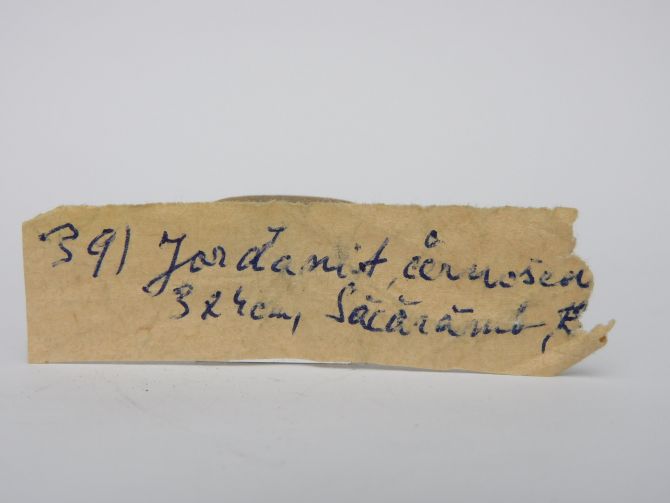 391 Jordanit, černošed
3x4cm, Săcărâmb, R